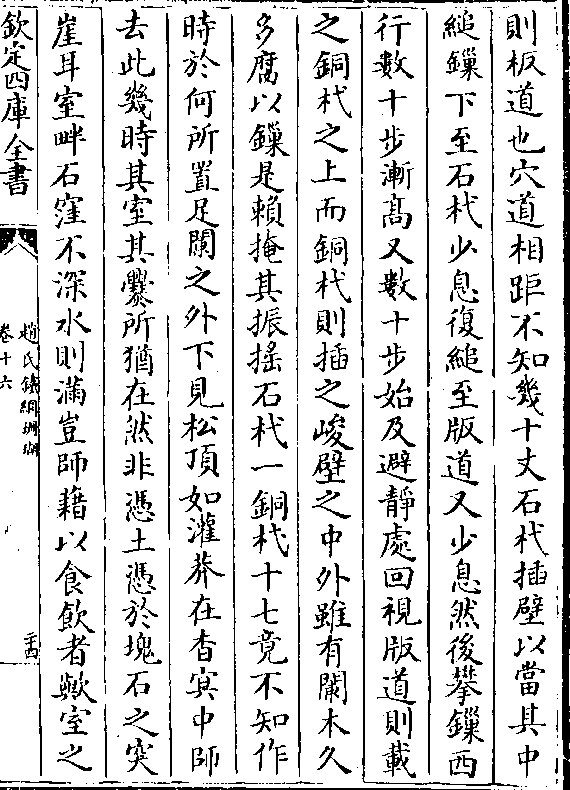 則板道也穴道相距不知幾十丈石杙插壁以當其中
縋鏁下至石杙少息復縋至版道又少息然後攀鏁西
行數十步漸髙又數十步始及避靜處回視版道則載
之銅杙之上而銅杙則插之峻壁之中外雖有闌木久
多腐以鏁是賴掩其振搖石杙一銅杙十七竟不知作
時於何所置足闌之外下見松頂如灌莽在杳冥中師
去此幾時其室其爨所猶在然非憑土憑於塊石之突
崖耳室畔石窪不深水則滿豈師藉以食飲者歟室之
欽定四庫全書
趙氏鐵網珊瑚
卷十六
二十四